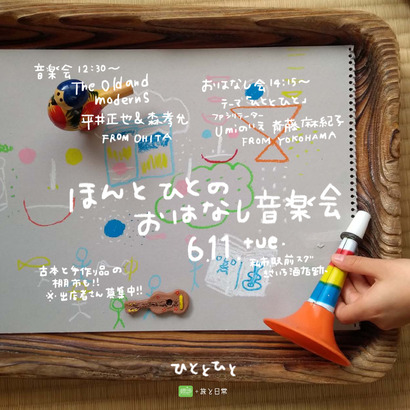 音楽会 12:30〜
The Old and
moderns
平井正也&森孝允
FROM OHITA
おはなし会 14:15〜
テーマ「ひととひと」
ファシリテーター
Umiのいえ 斉藤麻紀子
FROM YOKOHAMA
ほんと ひとの
おはなし音楽会
6.11 tue.
駅前スグ
古本と手作り品の
棚市も!!
※出店者さん募集中!!
ひととひと
+旅と日常